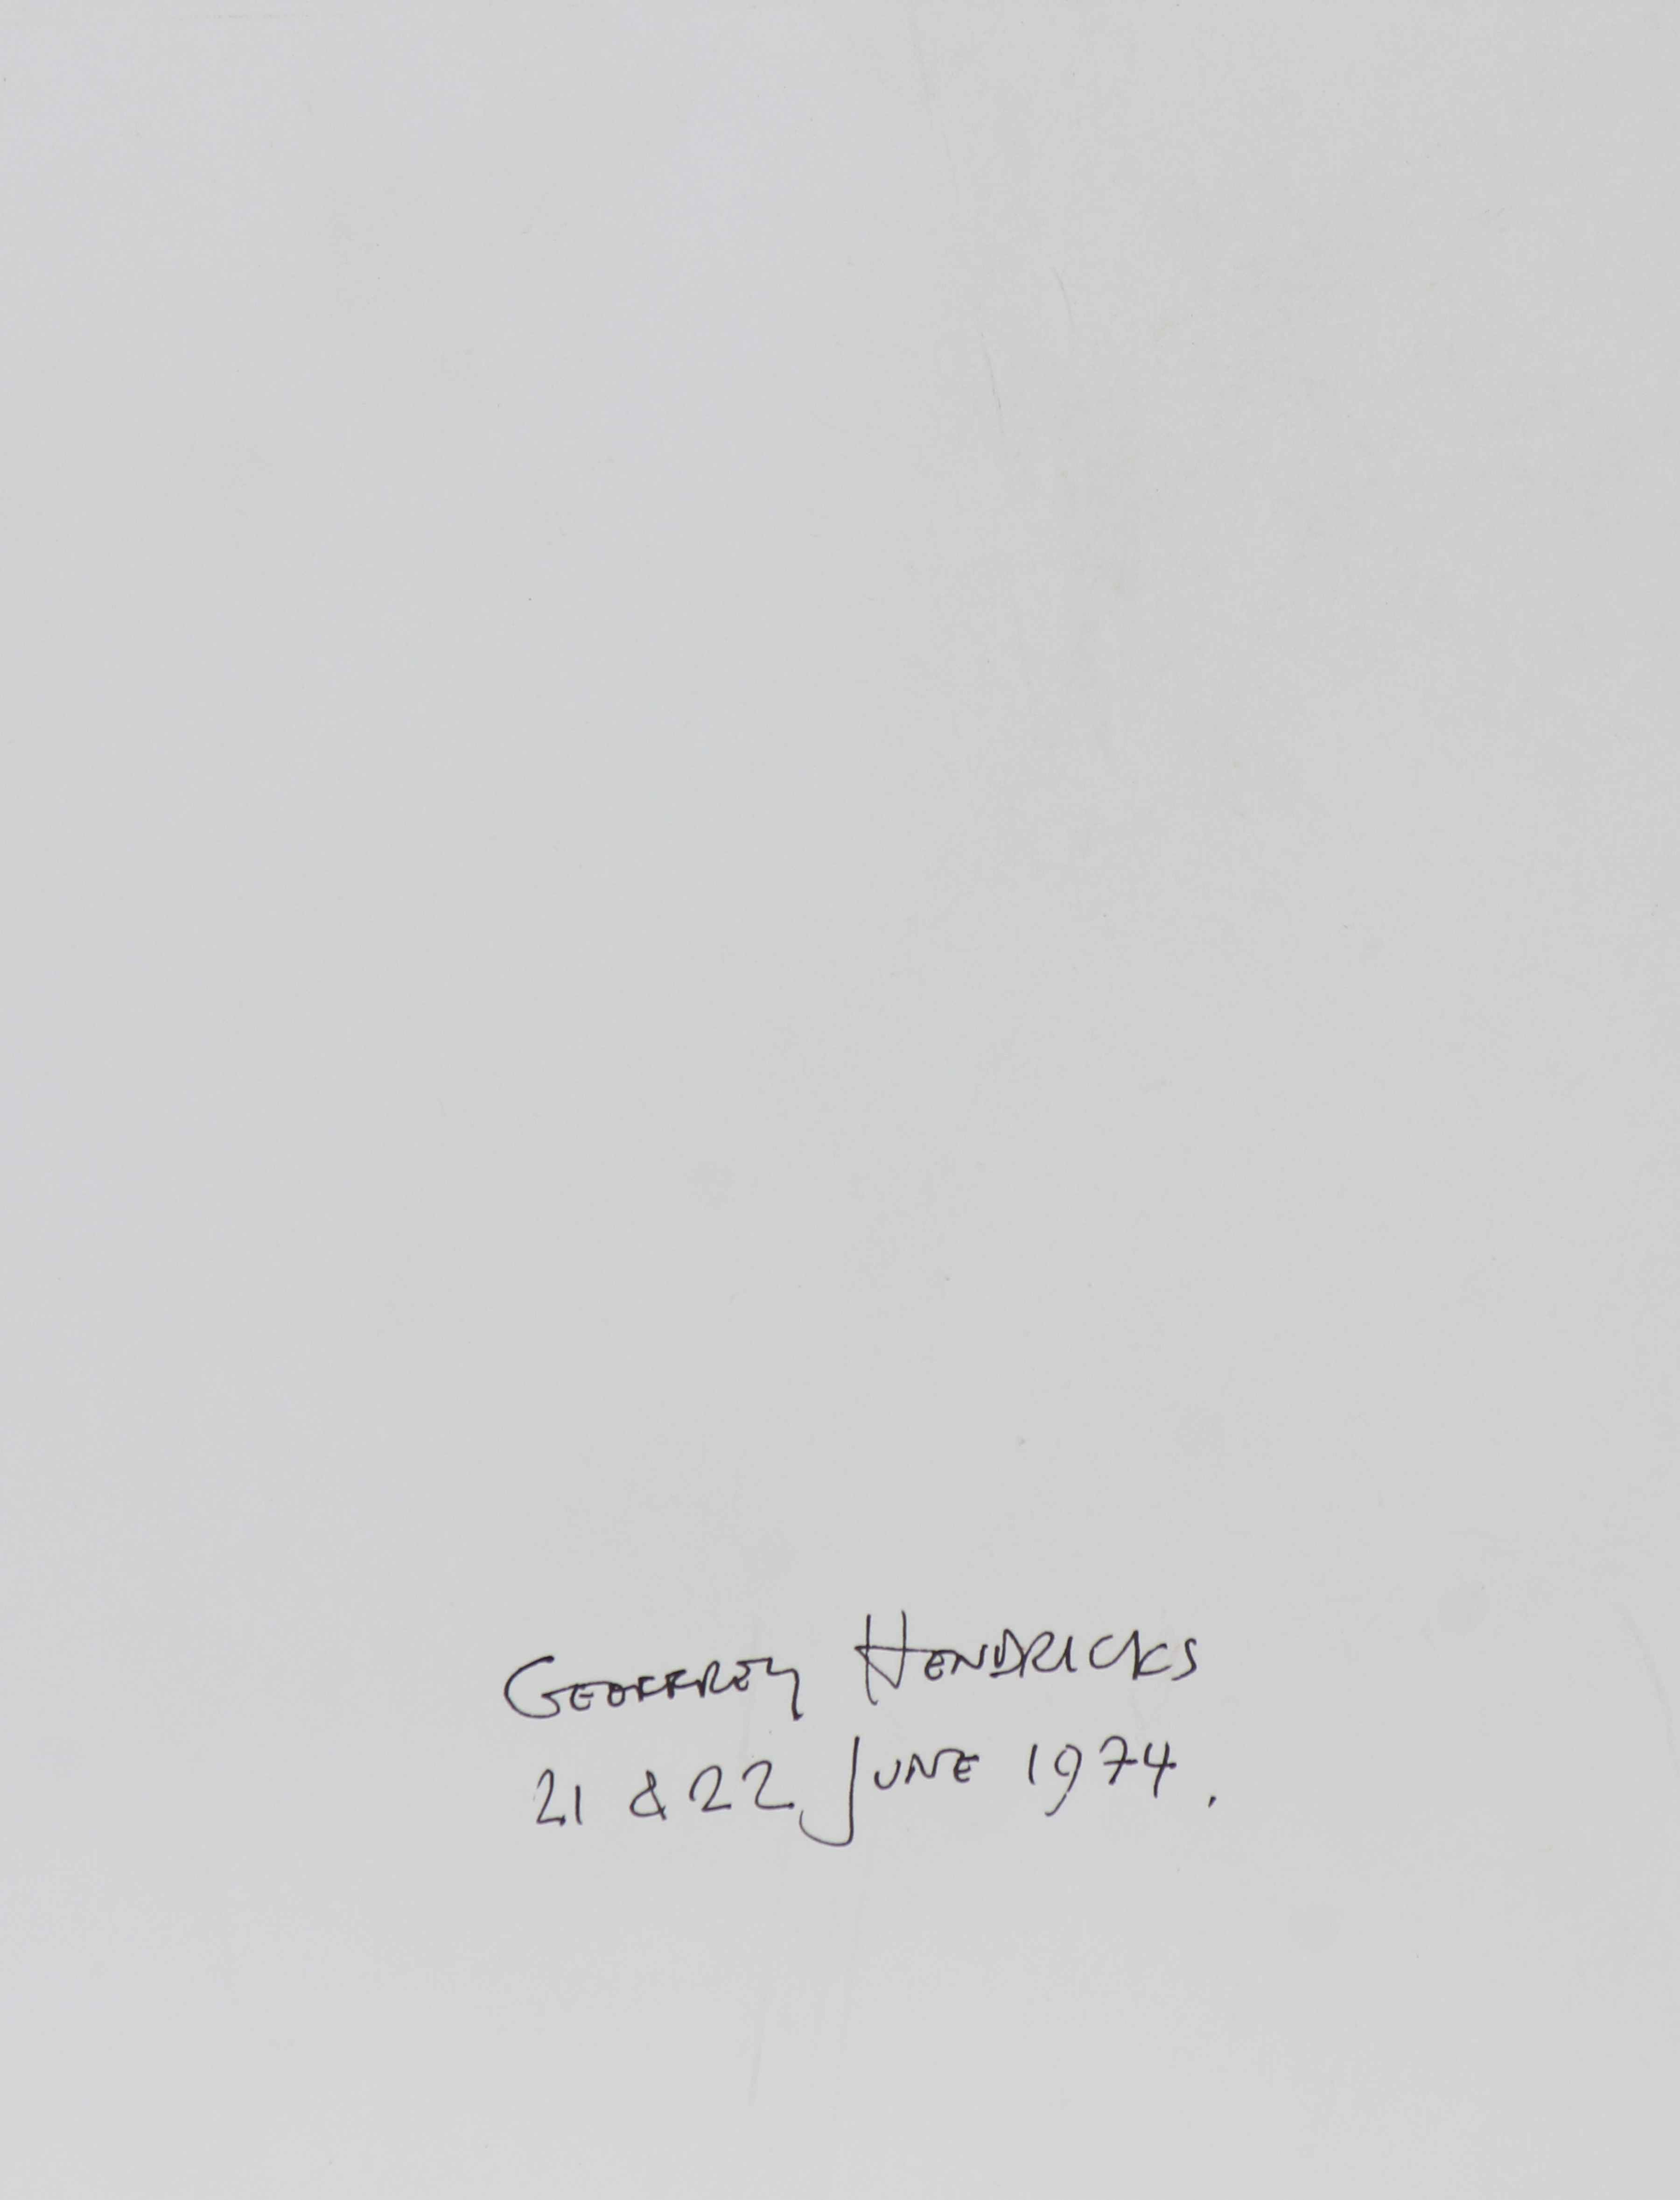 GEOFFREY HENDRICKS
21 & 22 JUNE 1974.